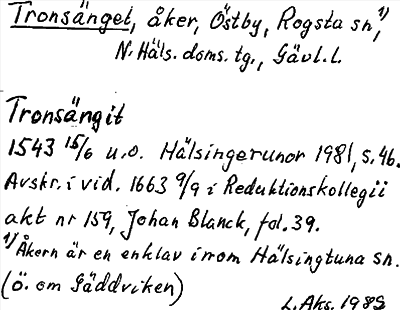 Tronsänget, åker, Östby, Rogsta sn,¹⁾
N. Häls. doms. tg., Gävl. l.
Tronsängit
1543 15/6 u.o. Hälsingerunor 1981, s. 46.
Avskr. i vid. 1663 9/9 i Reduktionskollegii
akt nr 159, Johan Blanck, fol. 39.
¹⁾ Åkern är en enklav inom Hälsingtuna sn.
(ö. om Gäddviken)
L. Aks. 1989